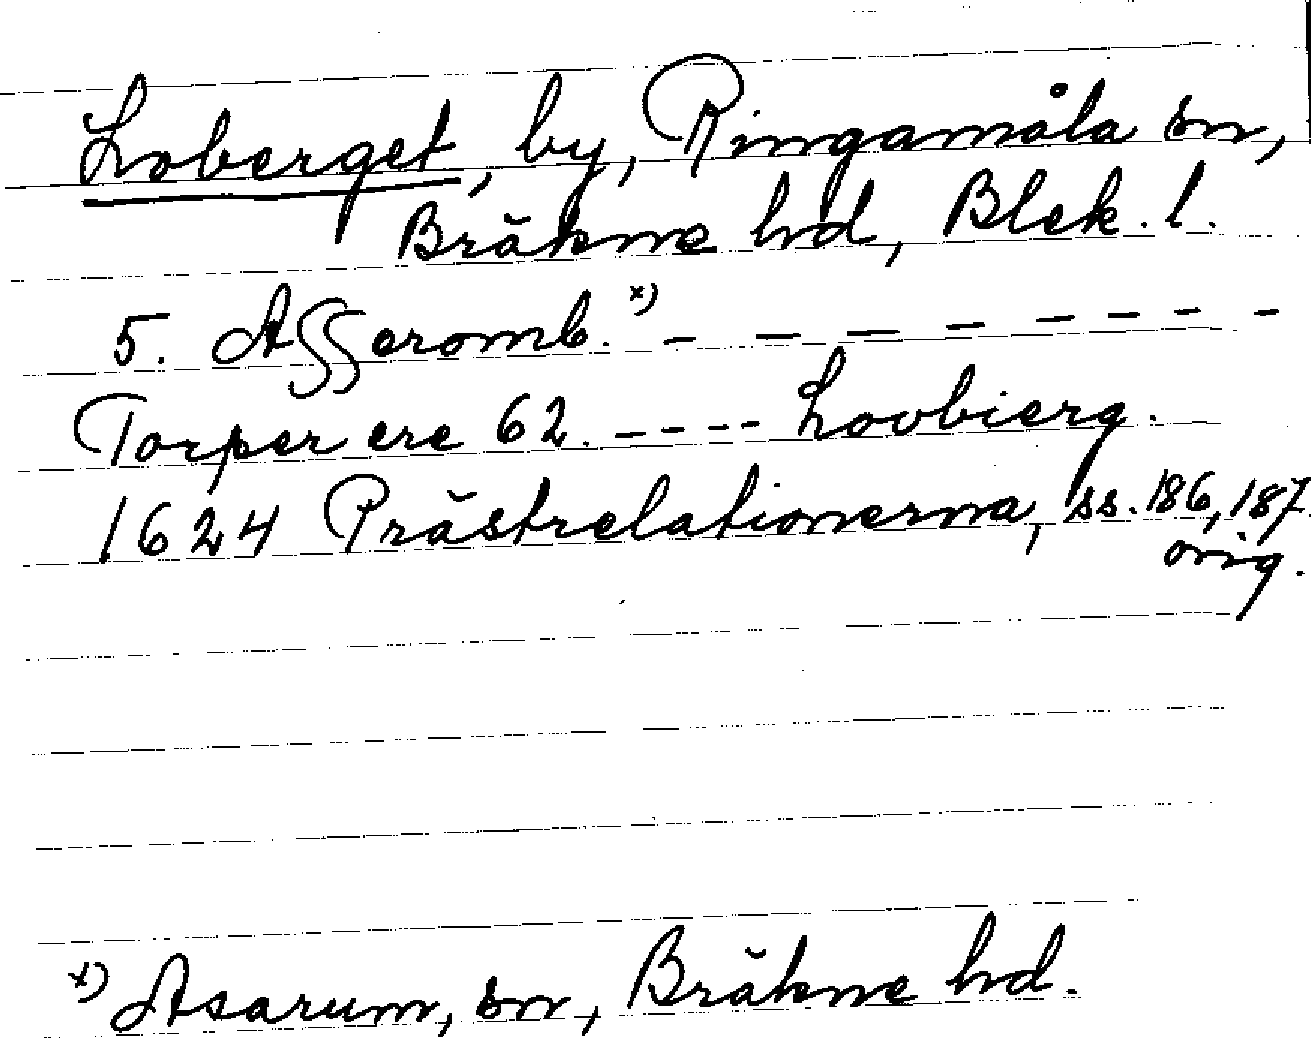 Loberget, by, Ringamåla sn,
Bräkne hd, Blek. l.
5. Asseromb. x) - - - - - - - -
Torper ere 62. - - - - Lovbierg.
1624 Prästrelationerna, ss. 186, 187.
orig.
x) Asarum, sn, Bräkne hd.